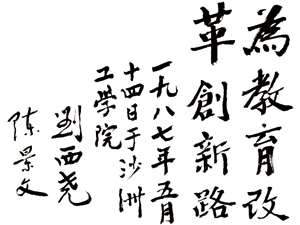 為教育改
革創新路
一九八七年五月
十四日于沙洲
工学院
劉西尧
陈景文